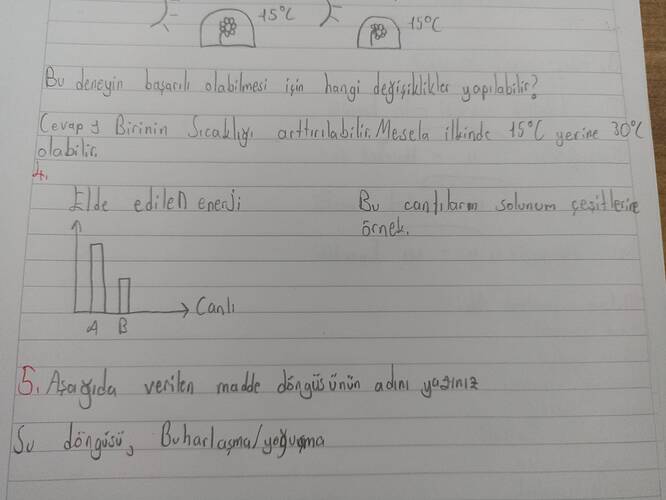 15°C
15°C
Bu deneyin başarılı olabilmesi için hangi değişiklikler yapılabilir?
Cevap → Birinin Sıcaklığı arttırılabilir. Mesela ilkinde 15°C yerine 30°C
olabilir.
4.
Elde edilen enerji
Bu canlıların solunum çeşitlerine
örnek.
Canlı
A B
5. Aşağıda verilen madde döngüsünün adını yazınız
Su döngüsü, Buharlaşma/yoğuşma